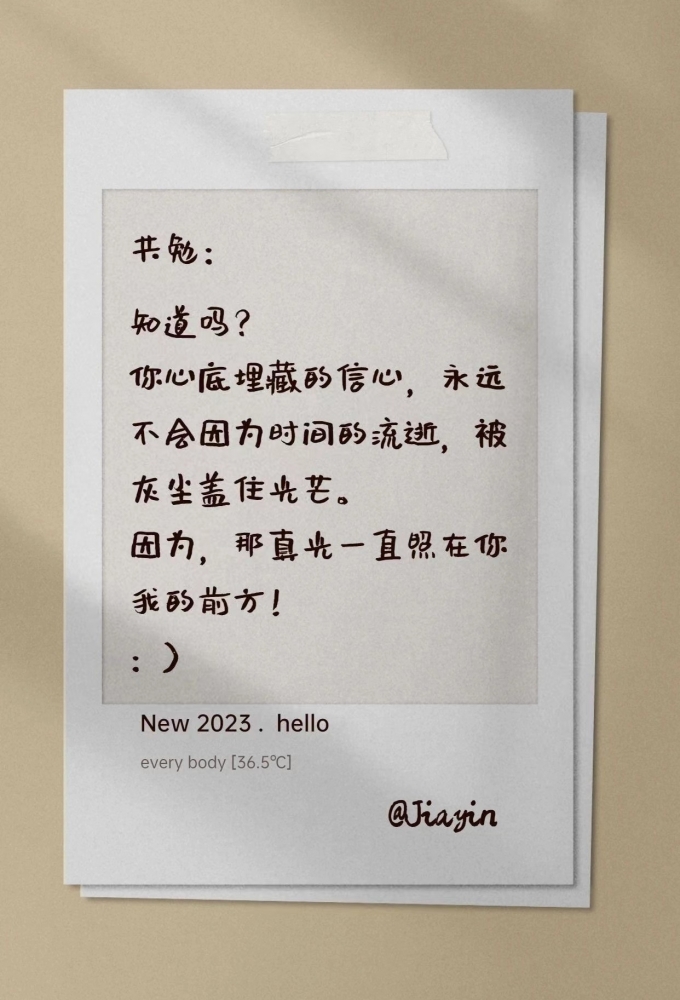 共勉：
知道吗？
你心底埋藏的信心，永远
不会因为时间的流逝，被
灰尘盖住光芒。
因为，那真光一直照在你
我的前方！
：）
New 2023 . hello
every body [36.5℃]
@Jiayin